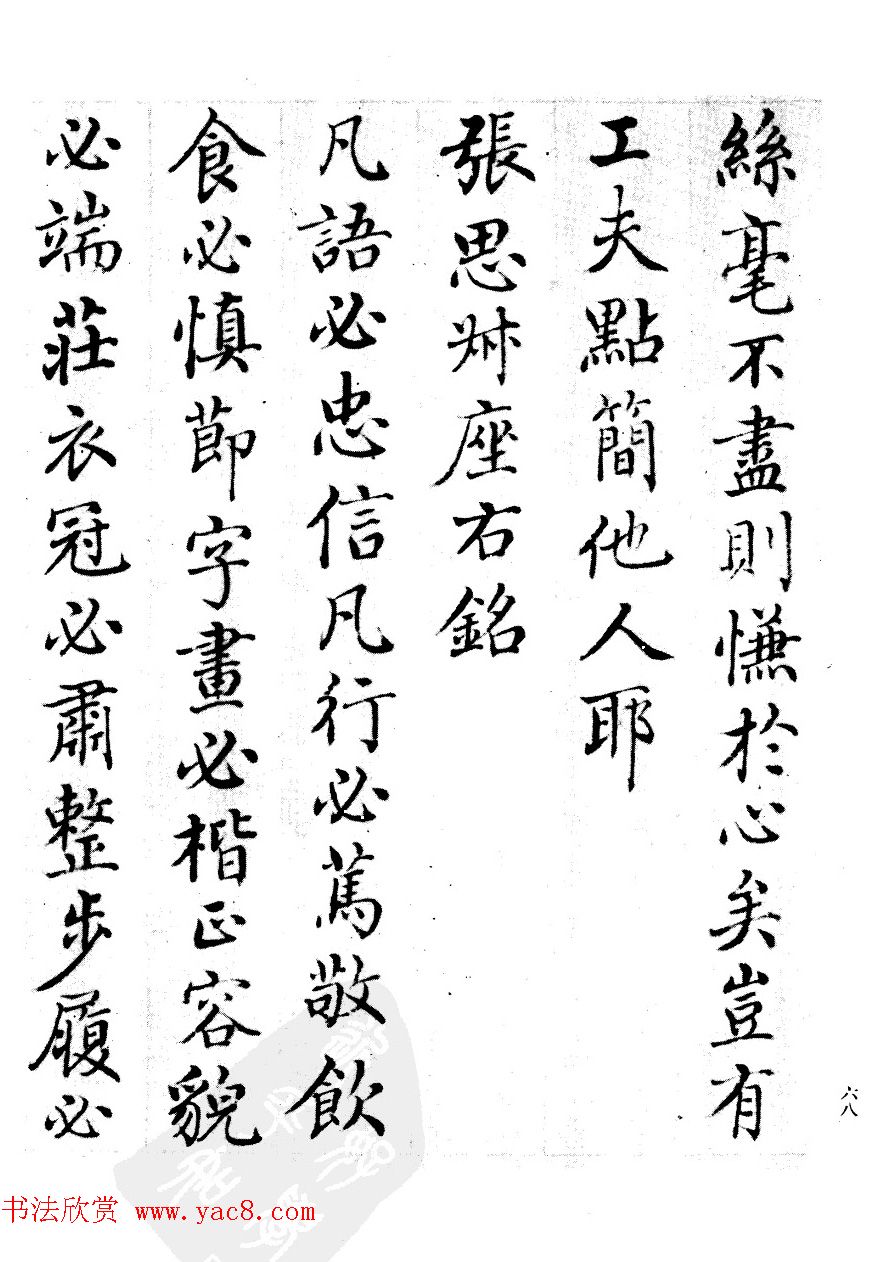 絲毫不盡則慊於心矣豈有
工夫點簡他人耶
張思叔座右銘
凡語必忠信凡行必篤敬飲
食必慎節字畫必楷正容貌
必端莊衣冠必肅整步履必
六八
书法欣赏 www.yac8.com